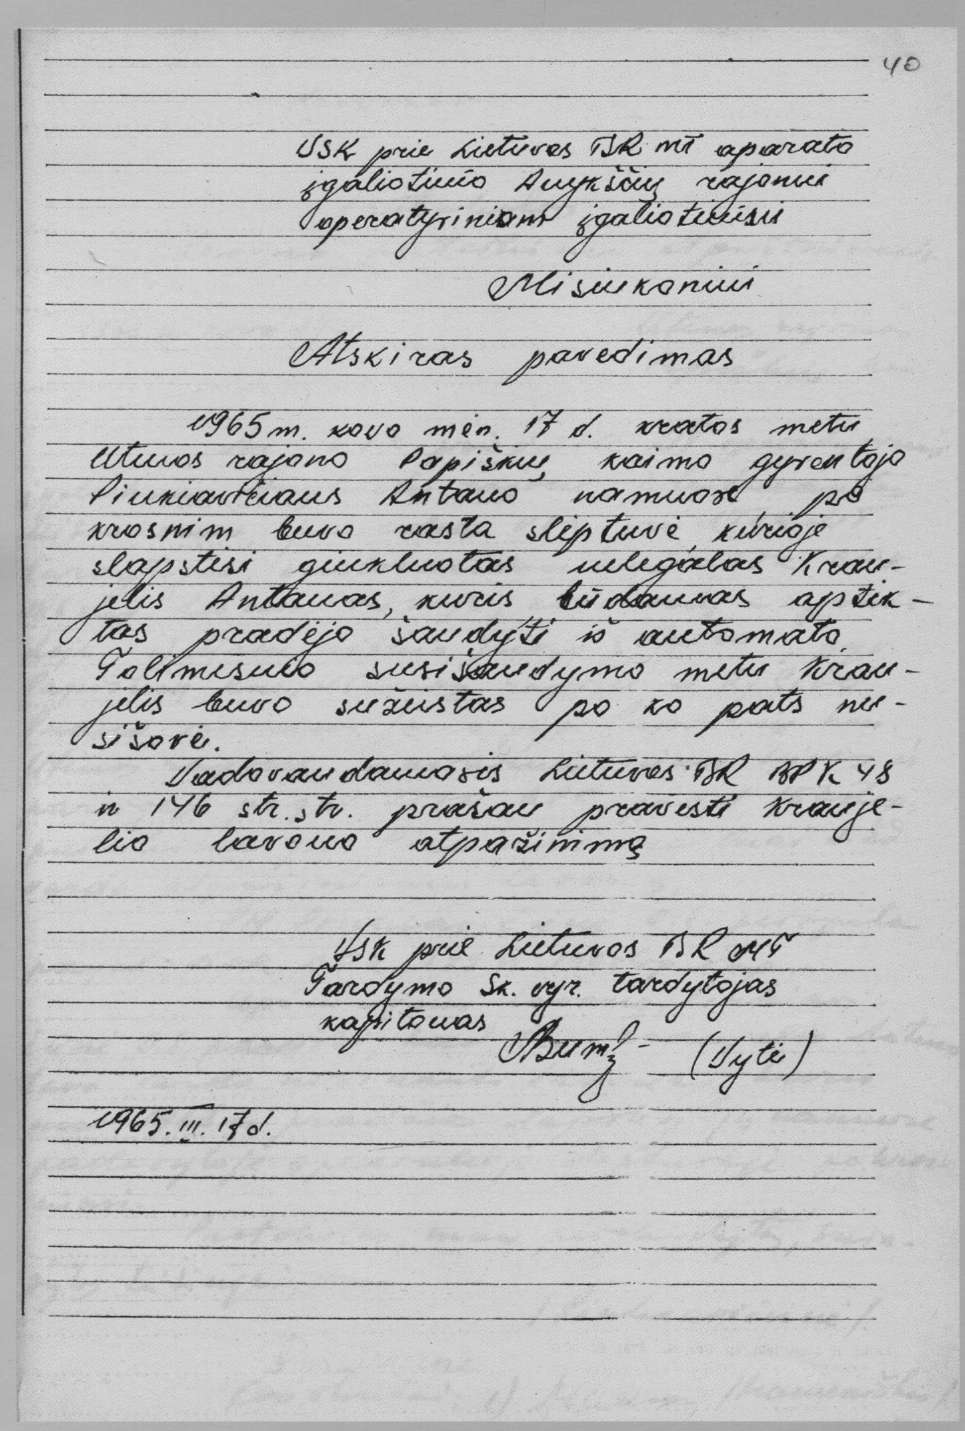 40
VSK prie Lietuvos TSR MT aparato
įgaliotinio Anykščių rajonui
operatyviniam įgaliotiniui
Misiukoniui
Atskiras pavedimas
1965 m. kovo mėn. 17 d. kratos metu
Utenos rajono Papiškių kaimo gyventojo
Pinkevičiaus Antano namuose po
krosnim buvo rasta slėptuvė, kurioje
slapstėsi ginkluotas nelegalas Krau-
jelis Antanas, kuris būdamas aptik-
tas pradėjo šaudyti iš automato.
Tolimesnio susišaudymo metu Krau-
jelis buvo sužeistas po ko pats nu-
sišovė.
Vadovaudamasis Lietuvos TSR BPK 48
ir 146 str. str. prašau pravesti Krauje-
lio lavono atpažinimą
VSK prie Lietuvos TSR MT
Tardymo Sk. vyr. tardytojas
kapitonas
(Vytė)
1965. III. 17 d.